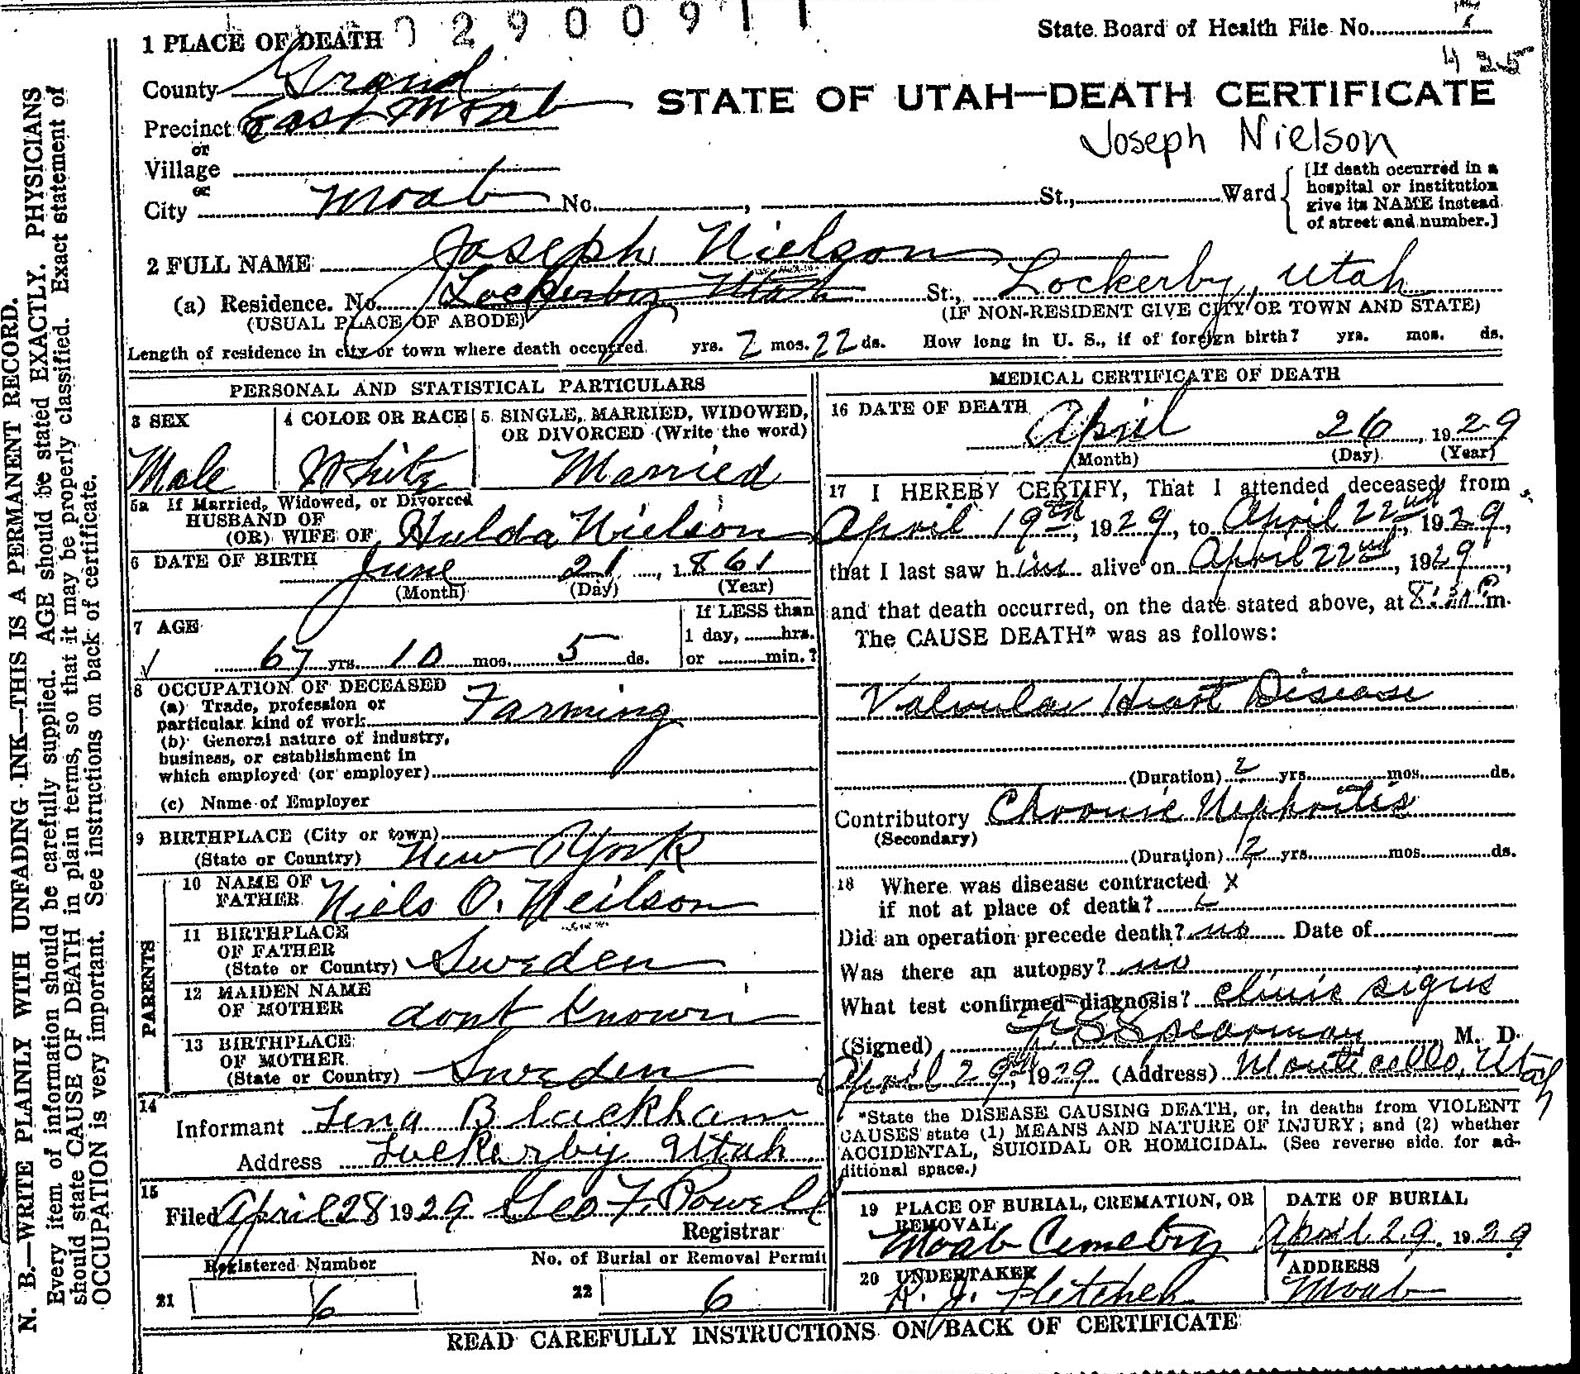 0290091
State Board of Health File No.
425
1 PLACE OF DEATH
County Grand
STATE OF UTAH—DEATH CERTIFICATE
Precinct East Moab
Joseph Nielson
or
Village
or
City Moab No. , St., Ward
[If death occurred in a
hospital or institution
give its NAME instead
of street and number.]
2 FULL NAME Joseph Nielson
(a) Residence. No. Lockerby Utah St., Lockerby, Utah
(USUAL PLACE OF ABODE) (IF NON-RESIDENT GIVE CITY OR TOWN AND STATE)
Length of residence in city or town where death occurred. yrs. 2 mos. 22 ds. How long in U. S., if of foreign birth? yrs. mos. ds.
PERSONAL AND STATISTICAL PARTICULARS
3 SEX
Male
4 COLOR OR RACE
White
5 SINGLE, MARRIED, WIDOWED,
OR DIVORCED (Write the word)
Married
5a If Married, Widowed, or Divorced
HUSBAND OF
(OR) WIFE OF Hulda Nielson
6 DATE OF BIRTH June 21, 1861
(Month) (Day) (Year)
7 AGE
67 yrs. 10 mos. 5 ds.
If LESS than
1 day, hrs.
or min.?
8 OCCUPATION OF DECEASED
(a) Trade, profession or
particular kind of work Farming
(b) General nature of industry,
business, or establishment in
which employed (or employer)
(c) Name of Employer
9 BIRTHPLACE (City or town)
(State or Country) New York
PARENTS
10 NAME OF
FATHER Niels O. Neilson
11 BIRTHPLACE
OF FATHER
(State or Country) Sweden
12 MAIDEN NAME
OF MOTHER dont known
13 BIRTHPLACE
OF MOTHER
(State or Country) Sweden
14
Informant Lena Blackham
Address Lockerby Utah
15
Filed April 28 1929 Geo F. Powell
Registrar
Registered Number
21 6
No. of Burial or Removal Permit
22 6
MEDICAL CERTIFICATE OF DEATH
16 DATE OF DEATH
April 26, 1929
(Month) (Day) (Year)
17 I HEREBY CERTIFY, That I attended deceased from
April 19th, 1929, to April 22nd, 1929,
that I last saw him alive on April 22nd, 1929,
and that death occurred, on the date stated above, at 8:30 P m.
The CAUSE DEATH* was as follows:
Valvular Heart Disease
(Duration) 2 yrs. mos. ds.
Contributory Chronic Nephritis
(Secondary)
(Duration) 2 yrs. mos. ds.
18 Where was disease contracted x
if not at place of death?
Did an operation precede death? no Date of
Was there an autopsy? no
What test confirmed diagnosis? clinic signs
(Signed) M. D.
April 29th, 1929 (Address) Monticello, Utah
*State the DISEASE CAUSING DEATH, or, in deaths from VIOLENT
CAUSES state (1) MEANS AND NATURE OF INJURY; and (2) whether
ACCIDENTAL, SUICIDAL OR HOMICIDAL. (See reverse side for ad-
ditional space.)
19 PLACE OF BURIAL, CREMATION, OR
REMOVAL
Moab Cemetry
DATE OF BURIAL
April 29, 1929
20 UNDERTAKER
R. J. Fletcher
ADDRESS
Moab
READ CAREFULLY INSTRUCTIONS ON BACK OF CERTIFICATE
N. B.—WRITE PLAINLY WITH UNFADING INK—THIS IS A PERMANENT RECORD.
Every item of information should be carefully supplied. AGE should be stated EXACTLY. PHYSICIANS
should state CAUSE OF DEATH in plain terms, so that it may be properly classified. Exact statement of
OCCUPATION is very important. See instructions on back of certificate.